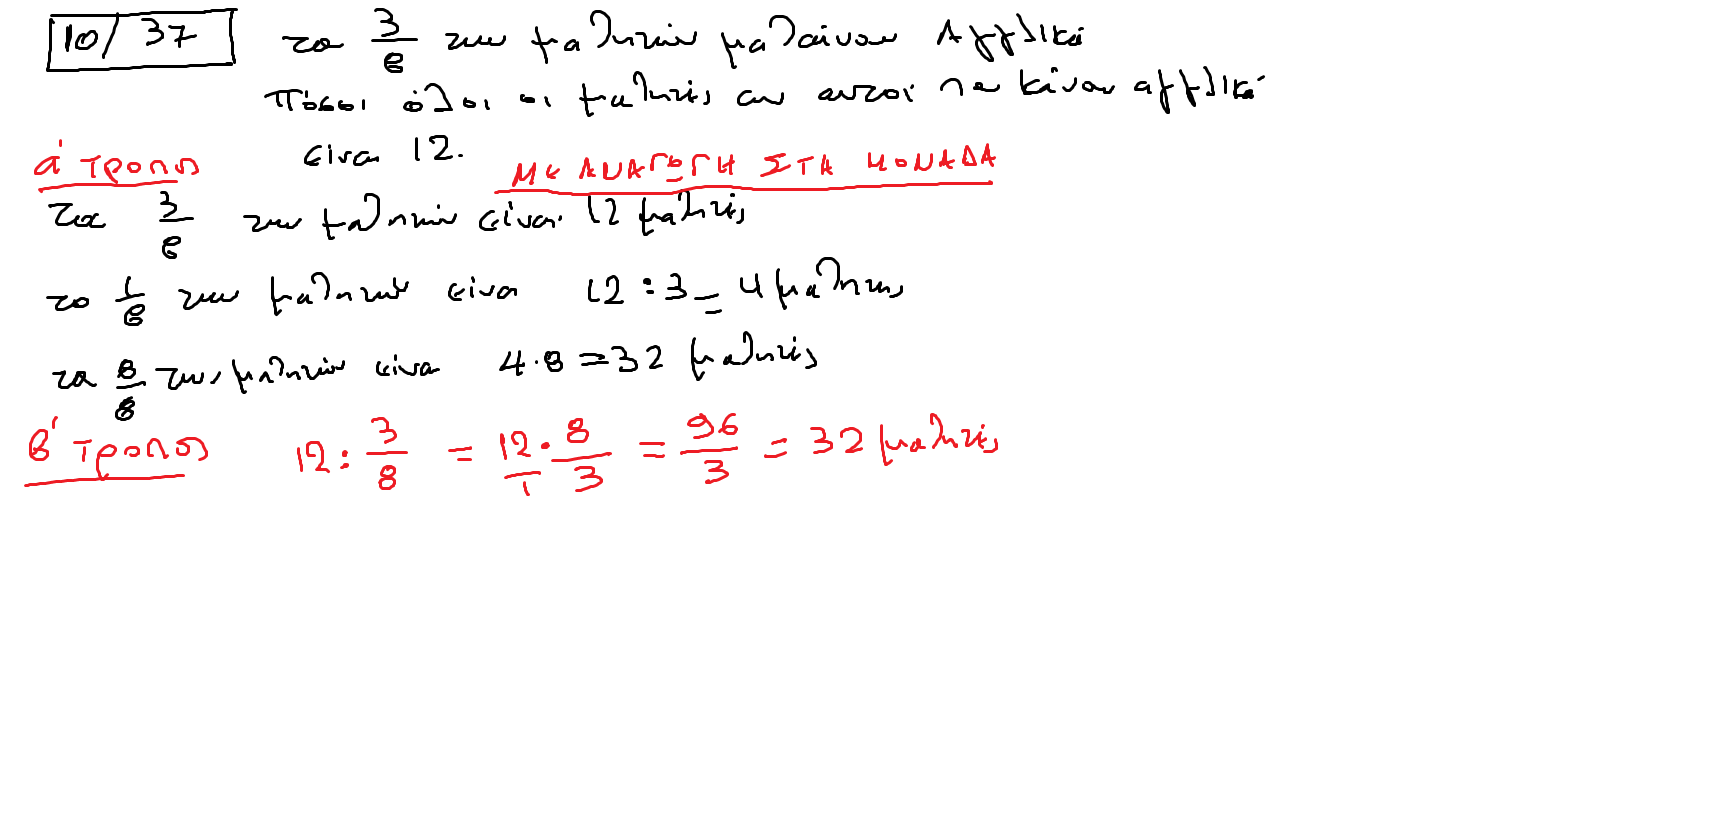 10/37 τα 3/8 των μαθητών μαθαίνουν Αγγλικά
Πόσοι όλοι οι μαθητές αν αυτοί που κάνουν αγγλικά
είναι 12.
α' τροπος ΜΕ ΑΝΑΓΩΓΗ ΣΤΑ ΜΟΝΑΔΑ
τα 3/8 των μαθητών είναι 12 μαθητές
το 1/8 των μαθητών είναι 12:3=4 μαθητες
τα 8/8 των μαθητών είναι 4·8=32 μαθητές
β' τροπος 12: 3/8 = 12/1 · 8/3 = 96/3 = 32 μαθητές